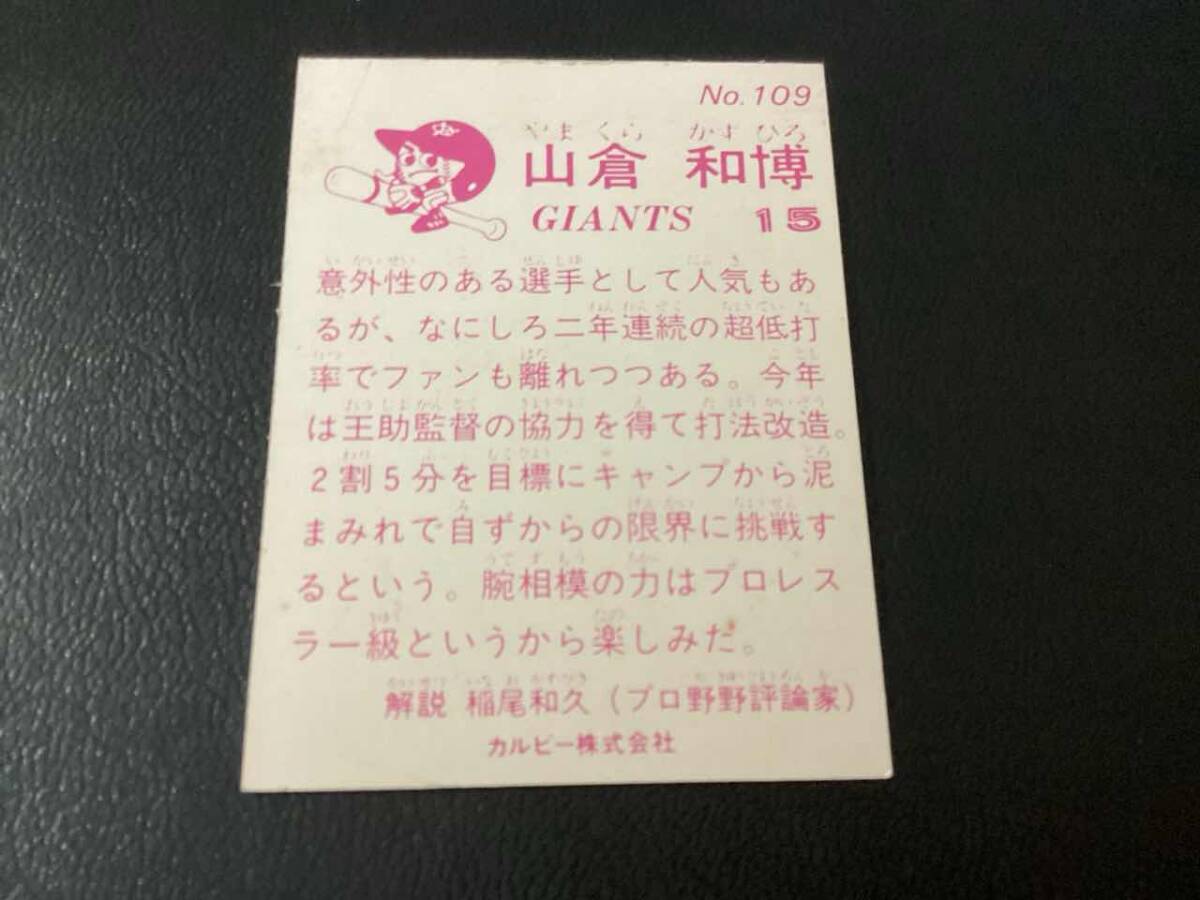 No. 109
やまくら かずひろ
山倉 和博
GIANTS 15
意外性のある選手として人気もあ
るが、なにしろ二年連続の超低打
率でファンも離れつつある。今年
は王助監督の協力を得て打法改造。
2割5分を目標にキャンプから泥
まみれで自ずからの限界に挑戦す
るという。腕相模の力はプロレス
ラー級というから楽しみだ。
解説 稲尾和久(プロ野野評論家)
カルビー株式会社